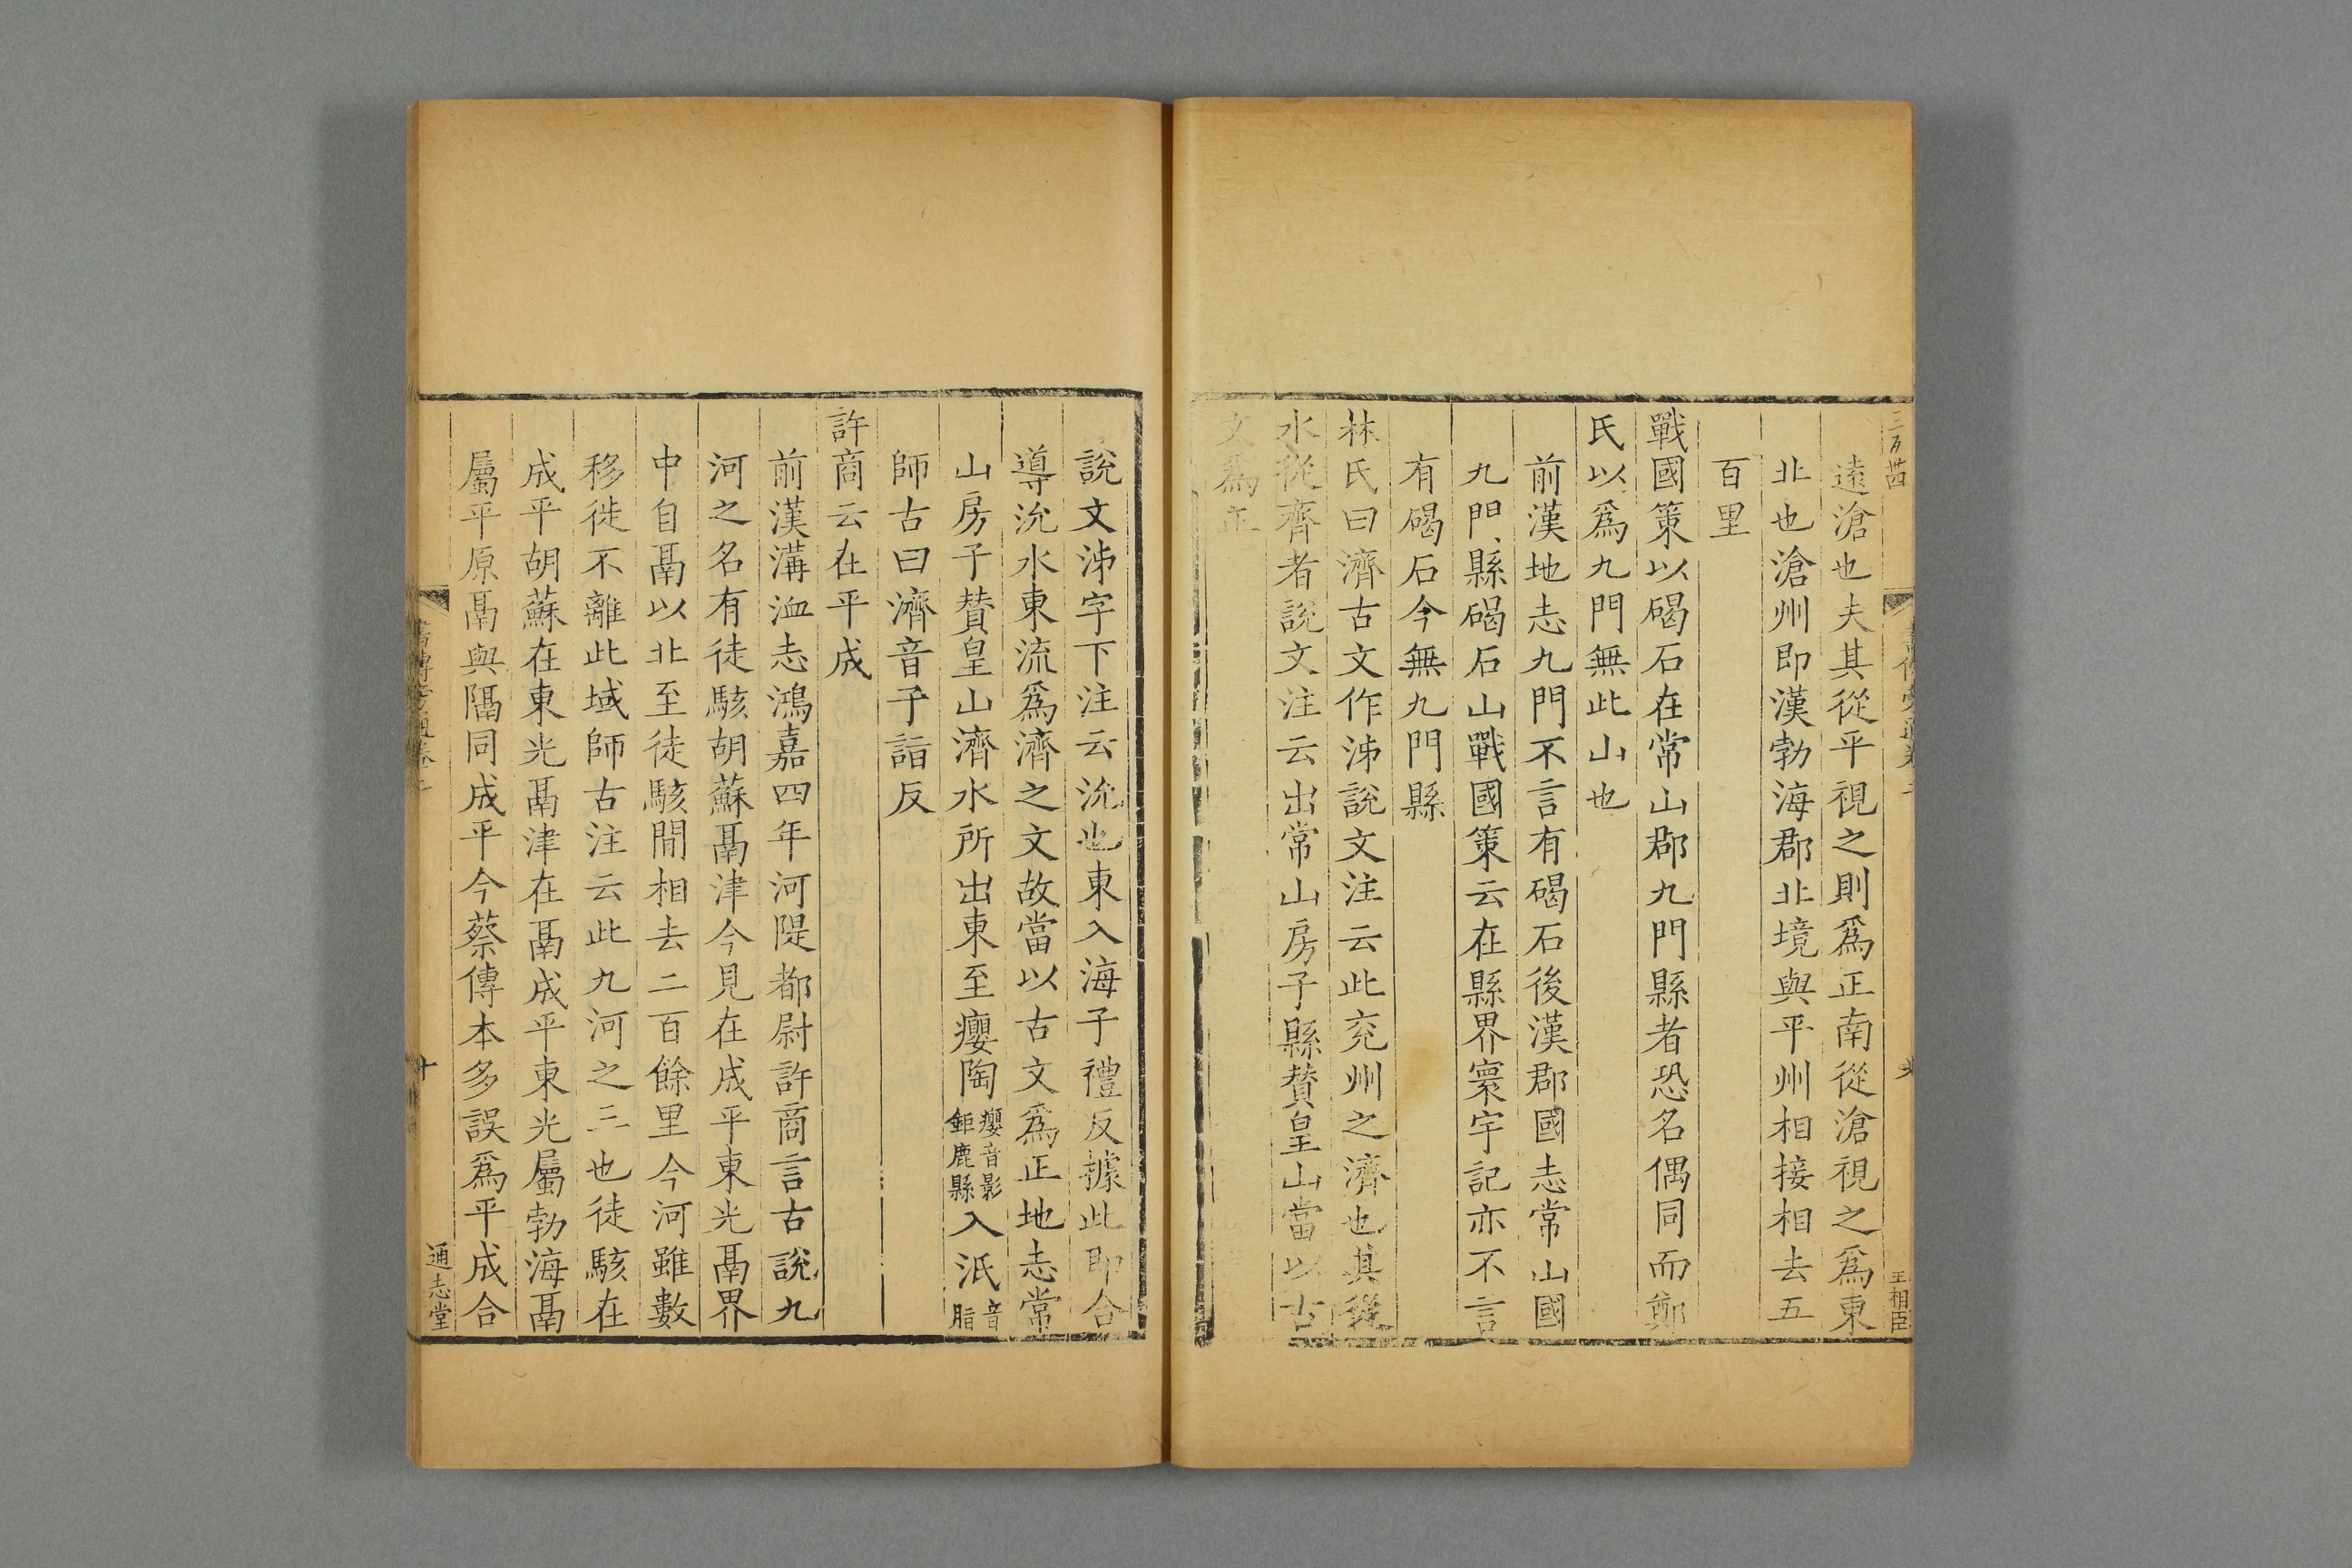 遠滄也夫其從平視之則爲正南從滄視之爲東
北也滄州即漢勃海郡北境與平州相接相去五
百里
戰國策以碣石在常山郡九門縣者恐名偶同而鄭
氏以爲九門無此山也
前漢地志九門不言有碣石後漢郡國志常山國
九門縣碣石山戰國策云在縣界寰宇記亦不言
有碣石今無九門縣
林氏曰濟古文作泲說文注云此兖州之濟也其從
水從齊者說文注云出常山房子縣賛皇山當以古
文爲正
王相臣
說文泲字下注云沇也東入海子禮反據此即合
導沇水東流爲濟之文故當以古文爲正地志常
山房子賛皇山濟水所出東至癭陶癭音影鉅鹿縣入泜音脂
師古曰濟音子詣反
許商云在平成
前漢溝洫志鴻嘉四年河隄都尉許商言古說九
河之名有徒駭胡蘇鬲津今見在成平東光鬲界
中自鬲以北至徒駭閒相去二百餘里今河雖數
移徙不離此域師古注云此九河之三也徒駭在
成平胡蘇在東光鬲津在鬲成平東光屬勃海鬲
屬平原鬲與隔同成平今蔡傳本多誤爲平成合
書傳旁通卷二
十
通志堂